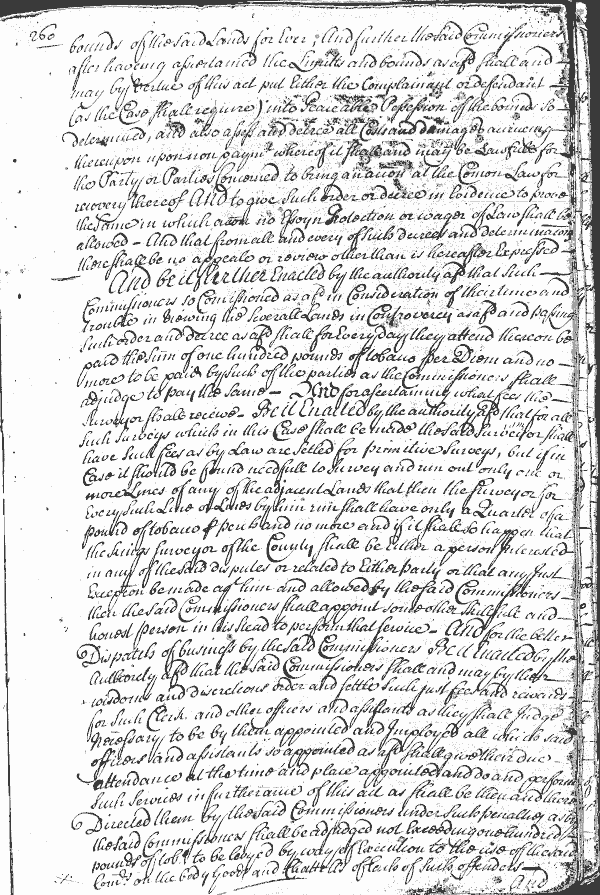 260
bounds of the said Lands for Ever, And further the said Commissioners
after having assertained the Limitts and bounds as afd shall and
may by Vertue of this act put Either the Complainant or defendant
(as the Case shall require) into Peaceable Possession of the bounds so
determined, and also assess and decree all Costs and damages accrueing
thereupon upon non paymt whereof it shall and may be Lawfull for
the Party or Parties concerned to bring an action at the Comon Law for
recovery thereof And to give such order or decree in Evidence to prove
the same in which action no Essoyn Protection or wager of Law shall be
allowed – And that from all and every of such decrees and determinacon
there shall be no appeale or review other than is hereafter Expressed
And be it further Enacted by the authority afd that such
Commissioners so Comissioned as afd in Consideration of their time and
trouble in viewing the severall Lands in Controversy as afd and passing
such order and decree as afd shall for Every day they attend thereon be
paid the sum of one hundred pounds of tobacco per Diem and no
more to be paid by such of the parties as the Commissioners shall
adjudge to pay the same – And for ascertaining what fees the
Surveyor shall receive – Be it Enacted by the authority afd that for all
such Surveys which in this Case shall be made the said Surveyor shall
have such fees as by Law are setled for primitive Surveys, but if in
Case it should be found needfull to Survey and run out only one or
more Lines of any of the adjacent Lands that then the Surveyor for
Every such Line or Lines by him run shall have only a Quarter of a
pound of tobacco p perch and no more and if it shall so happen that
the Kings Surveyor of the County shall be Either a person Interested
in any of the said disputes or related to Either Party or that any Just
Exception be made agt him and allowed by the said Commissioners
then the said Commissioners shall appoint some other skillfull and
honest Person in his stead to perform that service – And for the better
Dispatch of business by the said Commissioners Be it Enacted by the
Authority afd that the said Commissioners shall and may by their
wisdoms and discretions order and settle such just fees and rewards
for such Clerk and other officers and assistants as they shall Judge
Necessary to be by them appointed and Imployed all which said
officers and assistants so appointed as afd shall give their due
attendance at the time and place appointed and do and perform
such services in furtherance of this act as shall be then and there
Directed them by the said Commissioners under such penalties as
the said Commissioners shall be adjudged not Exceeding one hundred
pounds of tobo to be levyed by way of Execution to the use of the said
Comrs on the body Goods and Chattells of each of such offenders
And